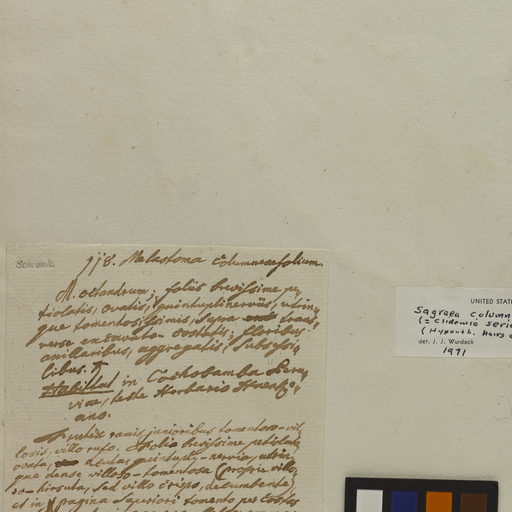 Schrank.
718. Melastoma columneaefolium.
M. octandrum; foliis brevissime pe,
tiolatis, ovatis, quintuplinerviis, utrin,
que tomentosissimis, supra trans,
verse excavato-costatis; floribus
axillaribus, aggregatis, subsessi,
libus. ♄
Habitat in Cochobamba Peru,
viae, teste Herbario Haenke,
ano.
Frutex ramis junioribus tomentoso-vil,
losis, villo rufo. Folia brevissime petiolata,
ovata, acuta, quintupli-nervia, utrin,
que dense villoso-tomentosa (proprie villo,
so-hirsuta, sed villo crispo, decumbente)
et in pagina superiori tomento per costas
UNITED STAT
Sagraea column
(= Clidemia seric
(Hypanth. hairs
det. J. J. Wurdack
1971